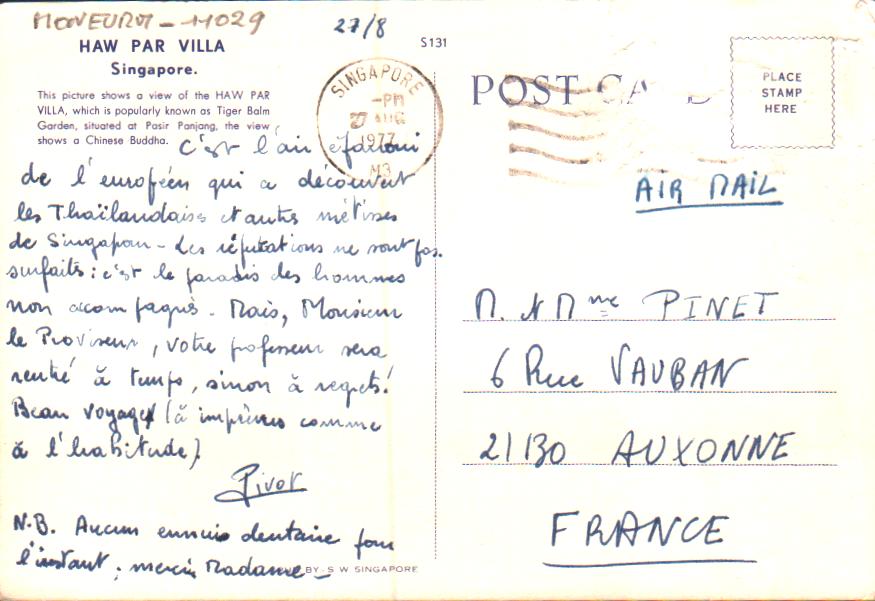 MONEURM - 11029
27/8
S131
HAW PAR VILLA
Singapore.
This picture shows a view of the HAW PAR
VILLA, which is popularly known as Tiger Balm
Garden, situated at Pasir Panjang, the view
shows a Chinese Buddha.
SINGAPORE
-PM
27 AUG
1977
M3
C'est l'air épanoui
de l'européen qui a découvert
les Thaïlandaises et autres métisses
de Singapour - Les réputations ne sont pas
surfaites : c'est le paradis des hommes
non accompagnés. Mais, Monsieur
le Proviseur, votre professeur sera
rentré à temps, sinon à regrets!
Beau voyage (à imprévus comme
à l'habitude)
Pivot
N.B. Aucun ennuis dentaire pour
l'instant ; merci Madame -
BY: S W SINGAPORE
POST CA D
PLACE
STAMP
HERE
AIR MAIL
M. et Mme PINET
6 Rue VAUBAN
21130 AUXONNE
FRANCE